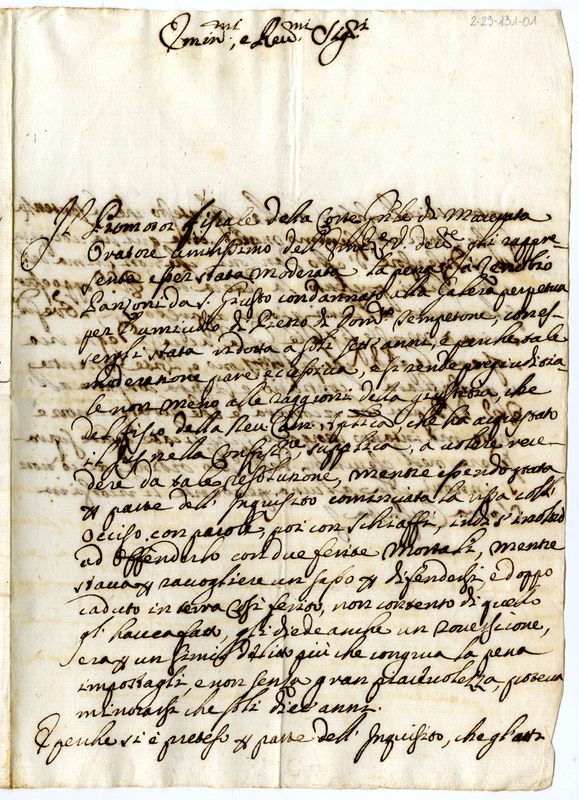 2-29-131-01
Emin.mi, e Reu.mi Sig.ri
Il Promotor Fiscale della Corte Gnle di Macerata
Oratore umilissimo dell' EE. VV. dece che rappre-
senta esser stata moderata la pena à
Panzoni da S. Giusto condannato alla Galera perpetua
per l'omicidio di Pietro di Dom.co Sempetone, con es-
sergli stata ridotta a soli sett'anni, e perche tale
moderazione pare eccessiva, e si rende pregiudizia-
le non meno alle raggioni della giustizia, che
del fisco della Reu. Cam. Aplica, che ha acquistato
il jus nella Confisc.ne, supplica, a volere rece-
dere da tale resoluzione, mentre essendo stata
p parte dell' Inquisito cominciata la rissa coll'
Occiso con parole, poi con schiaffi, indi s'inoltrò
ad offenderlo con due ferite mortali, mentre
stava p raccogliere un sasso p difendersi, e doppo
caduto in terra esso ferito, non contento di quello
gl' haveva fatto, gli diede anche un roverscione,
era p un simil delitto più che congrua la pena
impostagli, e non senza gran piacevolezza, poteva
minorarsi che soli dieci anni.
E perche si è preteso p parte dell' Inquisito, che gl'atti